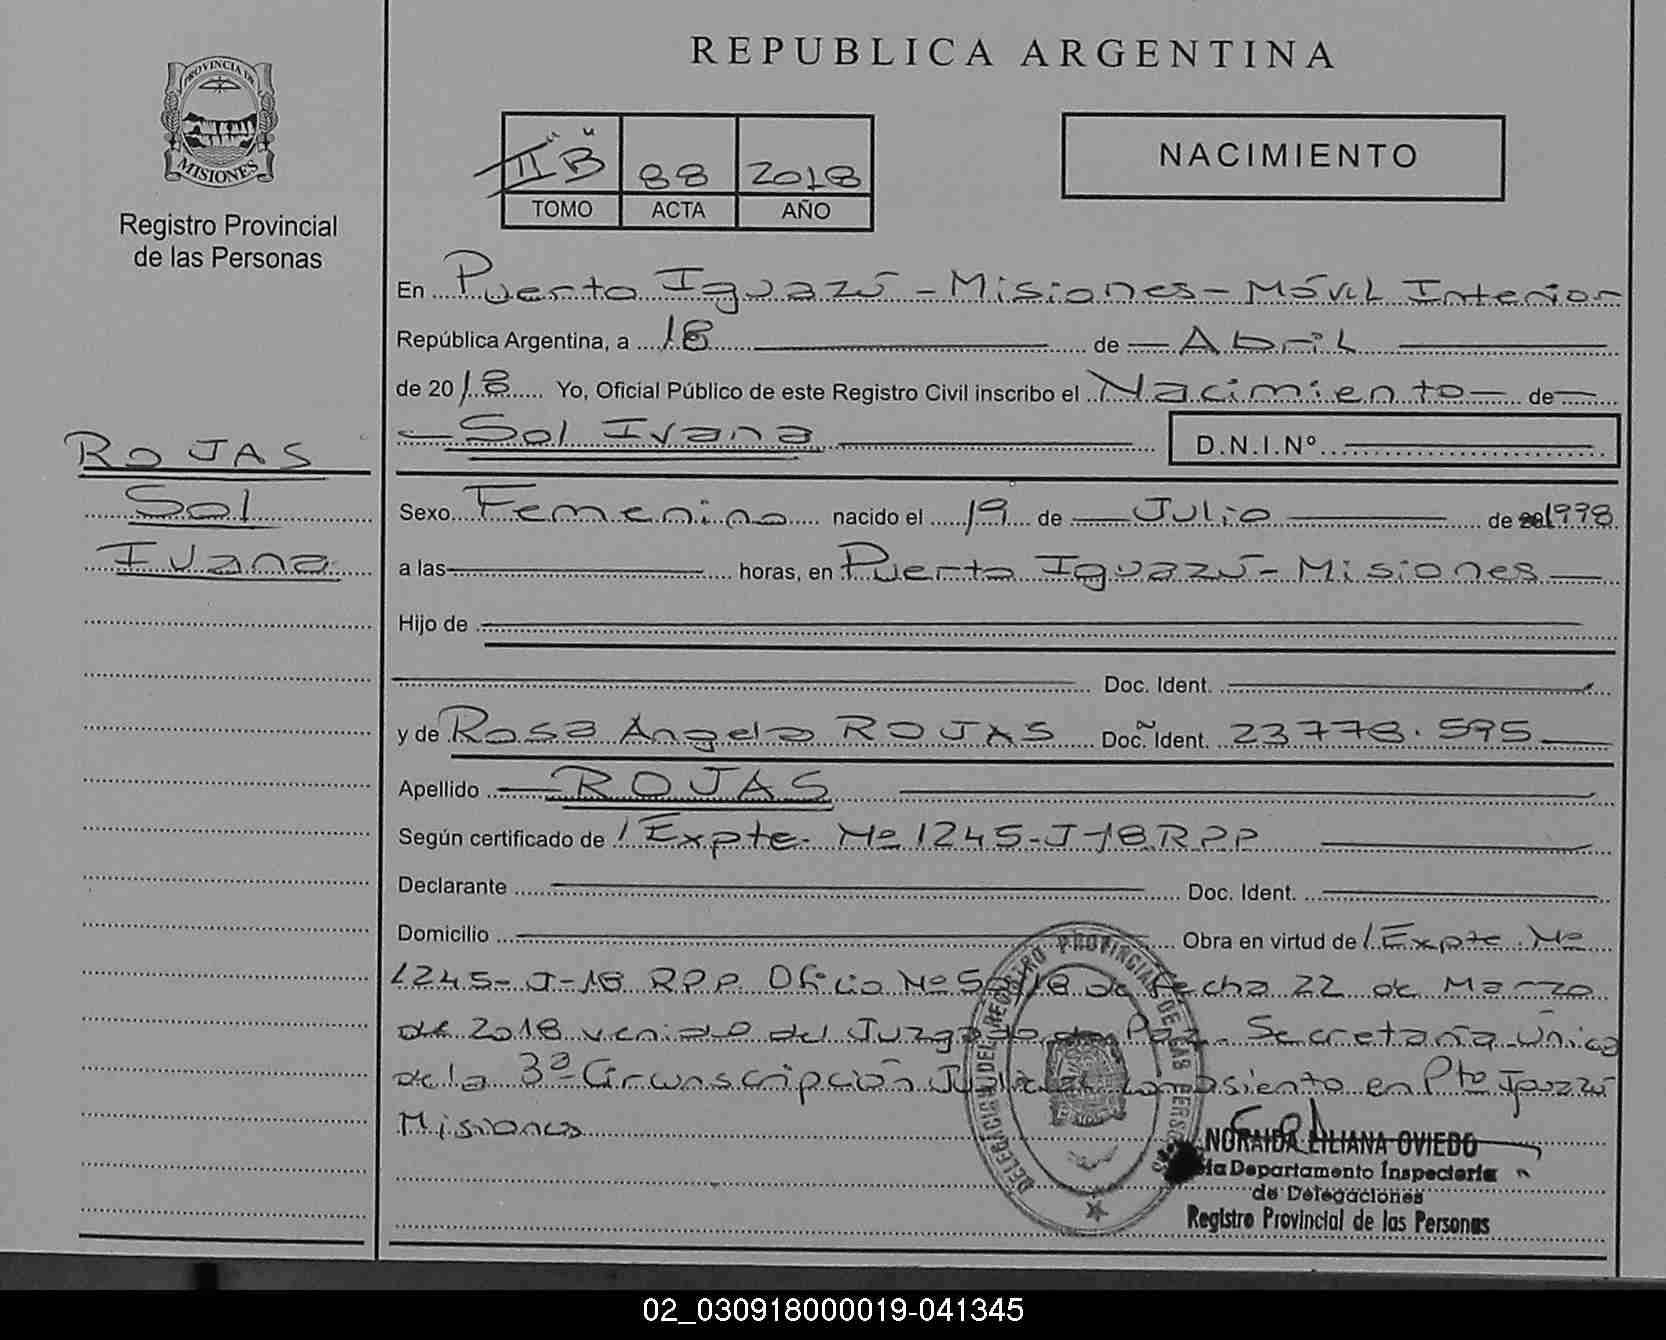 REPUBLICA ARGENTINA
PROVINCIA DE
MISIONES
Registro Provincial
de las Personas
II "B" 88 2018
TOMO ACTA AÑO
NACIMIENTO
En Puerto Iguazú - Misiones - Móvil Interior
República Argentina, a 18 de Abril
de 2018 Yo, Oficial Público de este Registro Civil inscribo el Nacimiento de
Sol Ivana D.N.I.Nº
ROJAS
Sol
Ivana
Sexo Femenino nacido el 19 de Julio de 1998
a las horas, en Puerto Iguazú - Misiones
Hijo de
Doc. Ident.
y de Rosa Angela ROJAS Doc. Ident. 23778.595
Apellido ROJAS
Según certificado de Expte. Nº 1245-J-18 RPP
Declarante Doc. Ident.
Domicilio Obra en virtud de Expte. Nº
1245-J-18 RPP Oficio Nº /18 de fecha 22 de Marzo
de 2018 venido del Juzgado de Paz. Secretaría Única
de la 3ª Circunscripción Judicial con asiento en Pto Iguazú
Misiones
DELEGACION DEL REGISTRO PROVINCIAL DE LAS PERSONAS
NORAIDA LILIANA OVIEDO
Departamento Inspectoría
de Delegaciones
Registro Provincial de las Personas
02_030918000019-041345